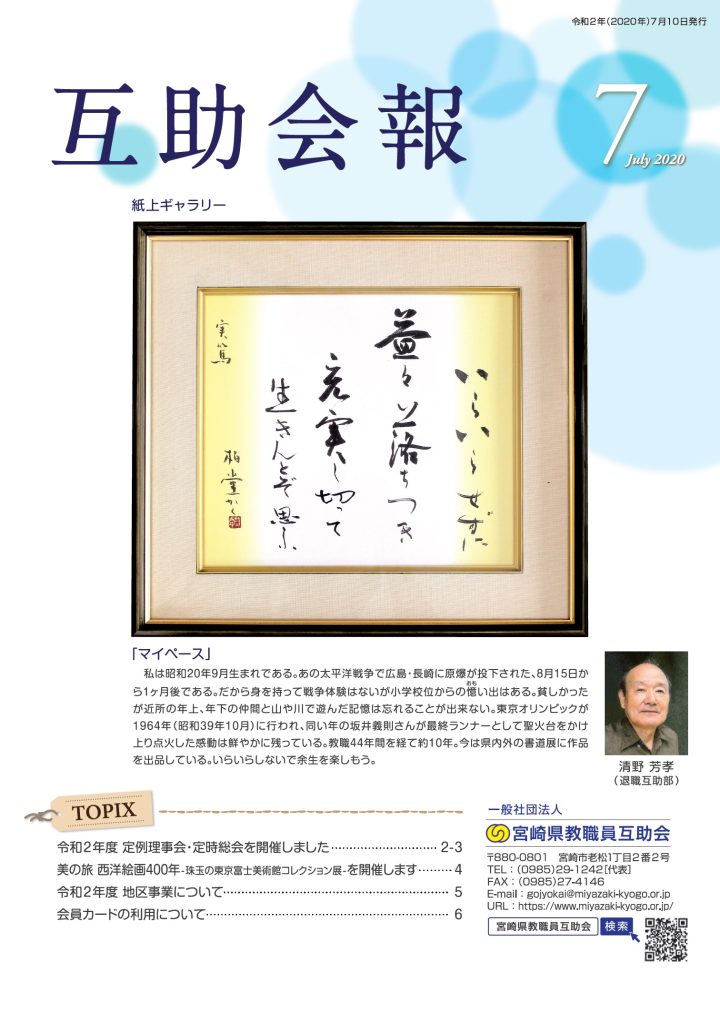 令和2年(2020年)7月10日発行
互助会報
7
July 2020
紙上ギャラリー
いらいらせずに
益々と落ちつき
充実し切って
生きんとぞ思ふ
実篤
柏堂かく
「マイペース」
私は昭和20年9月生まれである。あの太平洋戦争で広島・長崎に原爆が投下された、8月15日か
ら1ヶ月後である。だから身を持って戦争体験はないが小学校位からの憶い出はある。貧しかった
おも
が近所の年上、年下の仲間と山や川で遊んだ記憶は忘れることが出来ない。東京オリンピックが
1964年(昭和39年10月)に行われ、同い年の坂井義則さんが最終ランナーとして聖火台をかけ
上り点火した感動は鮮やかに残っている。教職44年間を経て約10年。今は県内外の書道展に作品
を出品している。いらいらしないで余生を楽しもう。
清野 芳孝
(退職互助部)
TOPIX
令和2年度 定例理事会・定時総会を開催しました…………………… 2-3
美の旅 西洋絵画400年-珠玉の東京富士美術館コレクション展-を開催します……… 4
令和2年度 地区事業について…………………………………………… 5
会員カードの利用について……………………………………………… 6
一般社団法人
宮崎県教職員互助会
〒880-0801 宮崎市老松1丁目2番2号
TEL:(0985)29-1242[代表]
FAX:(0985)27-4146
E-mail:gojyokai@miyazaki-kyogo.or.jp
URL:https://www.miyazaki-kyogo.or.jp/
宮崎県教職員互助会 検索